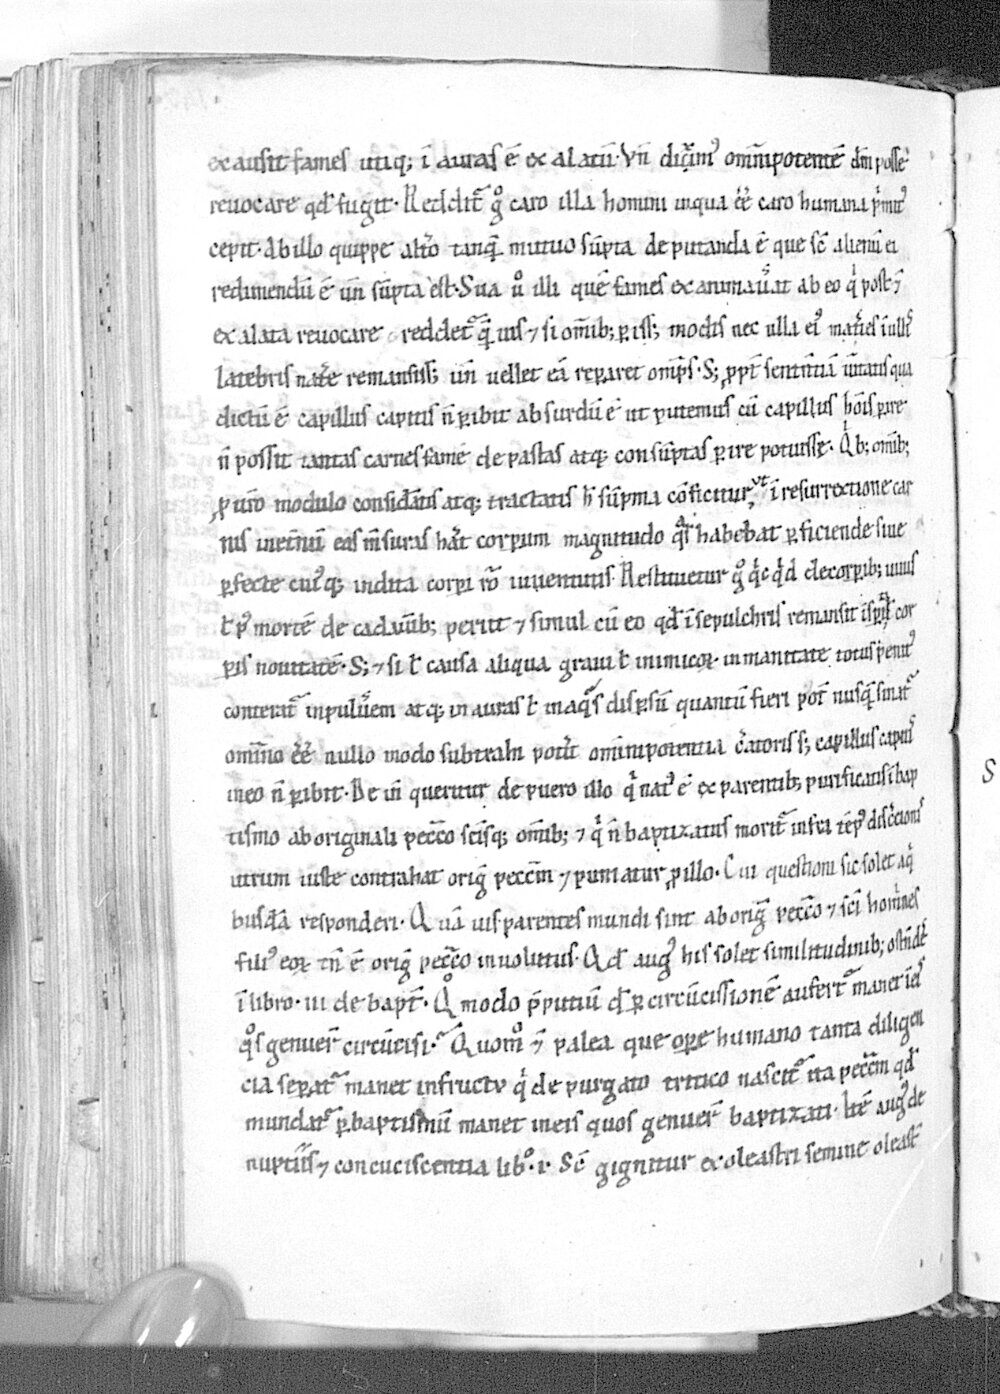 exausit fames utiq; ī auras ē ex alatū. Vn̄ diẋim᷒ om̄ipotentē dm̄ posse
reuocare qd̄ fugit. Reddit᷑ gͦ caro illa homini in qua eē caro humana pͥmit᷒
cepit. Ab illo quippe alt̄o tanqͣ mutuo sūpta deputanda ē que sē alienū ei
redimendū ē un̄ sūpta est. Sua ů illi quē fames exanimauit ab eo qͥ potest ⁊
exalata reuocare reddet᷑ qͣuis ⁊ si om̄ib; ꝑiss; modis nec ulla ei᷒ mat̄ies ī ullis
latebris nat̄e remansiss; un̄ uellet eā reparet omp̄s. S; ꝓpt̄ sententiā ū̄itatis qua
dictū ē capillus capitis n̄ ꝑibit absurdū ē ut putemus cū capillus ho̅is ꝑire
n̄ possit tantas carnes fame depastas atq; consūptas ꝑire potuisse. Qͥb; om̄ib;
ꝓ nr̄o modulo consid̄atis atq; tractatis h̄ sūpma cōficitur, ut ī resurrectione car
nis inet̄nū eas m̄suras hāt corporum magnitudo qͣs habebat ꝑficiende siue
ꝑfecte cui᷒q; indita corpi rō iuuentutis. Restituetur gͦ qͥcqͥd de corporib; uiuis
ł p᷒ mortē de cadau̅ib; periit ⁊ simul cū eo qd̄ ī sepulchris remansit ī spūal cor
pis nouitatē. S; ⁊ si ł causa aliqua graui ł inimicoꝝ inmanitate totus penit᷒
conterat᷑ in puluerem atq; in auras ł in aqͣs disꝑsū quantū fieri pot̄ nusqͣ sinat᷑
om̄ino eē nullo modo subtrahi potit om̄ipotentia c̄atoris s; capillus capit᷒
in eo n̄ ꝑibit. De in̄ queritur de puero illo qͥ nat᷒ ē ex parentib; purificatis ī bap
tismo ab originali pecc̄o sc̄isq; om̄ib; ⁊ qͥ n̄ baptizatus morit᷑ infra tēp᷒ disc̄cionis
utrum iuste contrahat orig̅ pecc̄m ⁊ puniatur ꝓ illo. Cui questioni sic solet a qͥ
busdā responderi. Quāuis parentes mundi sint ab orig̅ pecc̄o ⁊ sc̄i homines
fili᷒ eoꝝ tn̄ ē orig̅ pecc̄o inuolutus. Qd̄ aug᷒ his solet similitudinib; ostēdē
ī libro .iii. de bapt̄. Qͦmodo p̄putiū qd̄ ꝑ circūcissionē aufert᷑ manet ī eis
qͦs genuer̄ circūcisi. Quomͦ ⁊ palea que ope humano tanta diligen
cia separat᷑ manet in fructu qͥ de purgato tritico nascit᷑ ita pecc̄m qd̄
mundat᷑ ꝑ baptismū manet in eis quos genuer̄ baptizati. Itē aug᷒ de
nuptiis ⁊ concuciscentia libͦ .i. Sē gignitur ex oleastri semine oleast̄
S